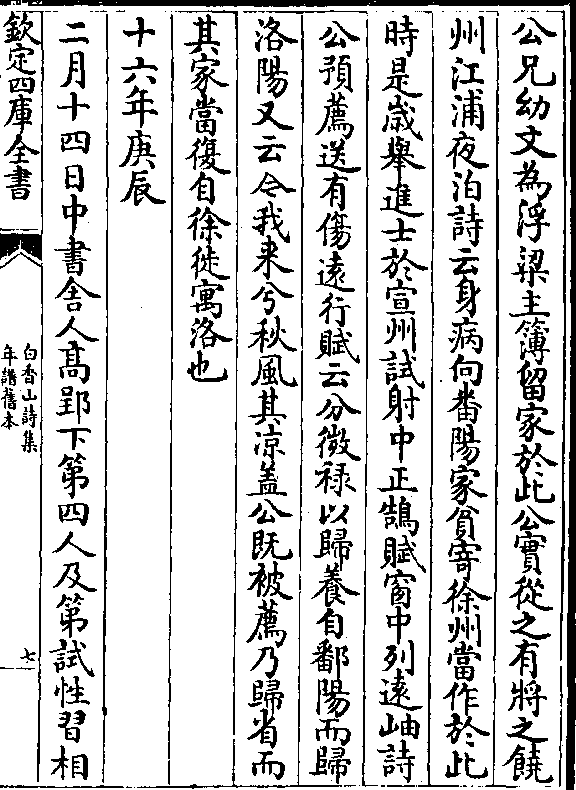 公兄幼文為浮梁主簿留家於此公實從之有將之饒
州江浦夜泊詩云身病向番陽家貧寄徐州當作於此
時是歳舉進士於宣州試射中正鵠賦窗中列遠岫詩
公預薦送有傷遠行賦云分微祿以歸養自鄱陽而歸
洛陽又云今我来兮秋風其凉盖公既被薦乃歸省而
其家當復自徐徙寓洛也
十六年庚辰
二月十四日中書舍人髙郢下第四人及第試性習相
欽定四庫全書
白香山詩集
年譜舊本
七